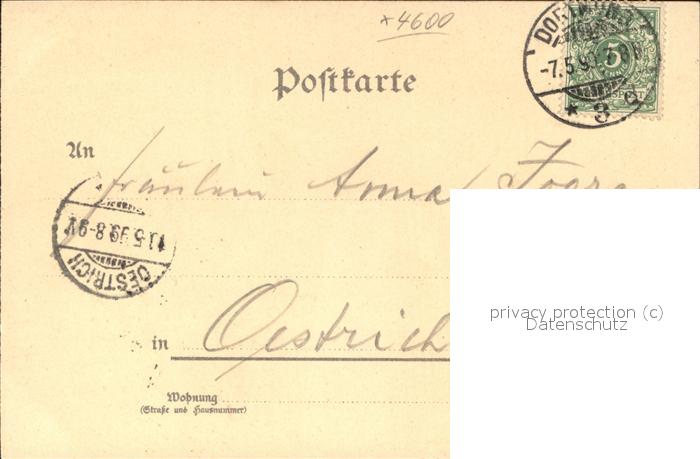 *4600
Postkarte
DORTMUND
-7.5.99.
* 3 c.
5
An
Fräulein Anna
OESTRICH
11.5.99.8-9V
in Oestrich
Wohnung
(Straße und Hausnummer)
privacy protection (c)
Datenschutz